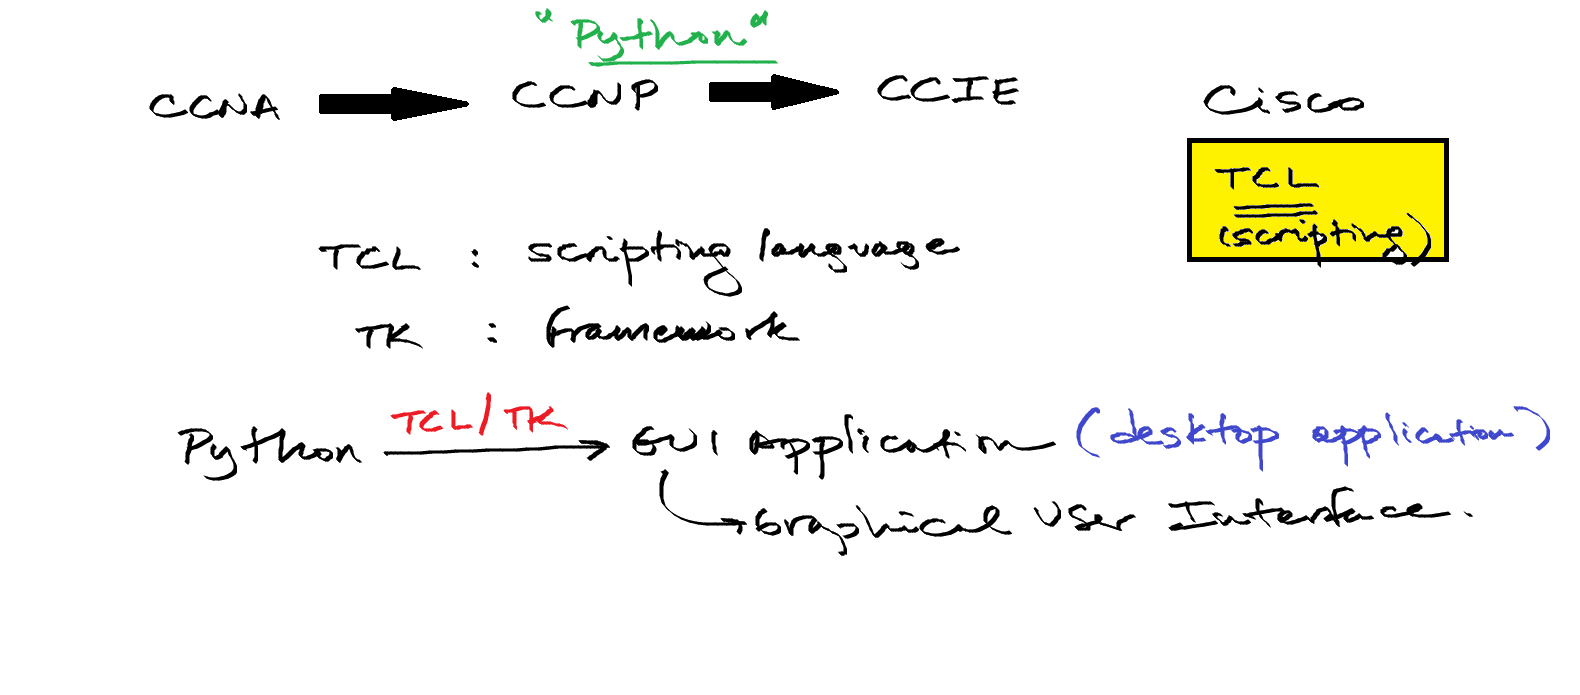 "Python"
CCNA → CCNP → CCIE
Cisco
TCL
(scripting)
TCL : scripting language
TK : framework
Python TCL/TK → GUI Application (desktop application)
→ Graphical User Interface.